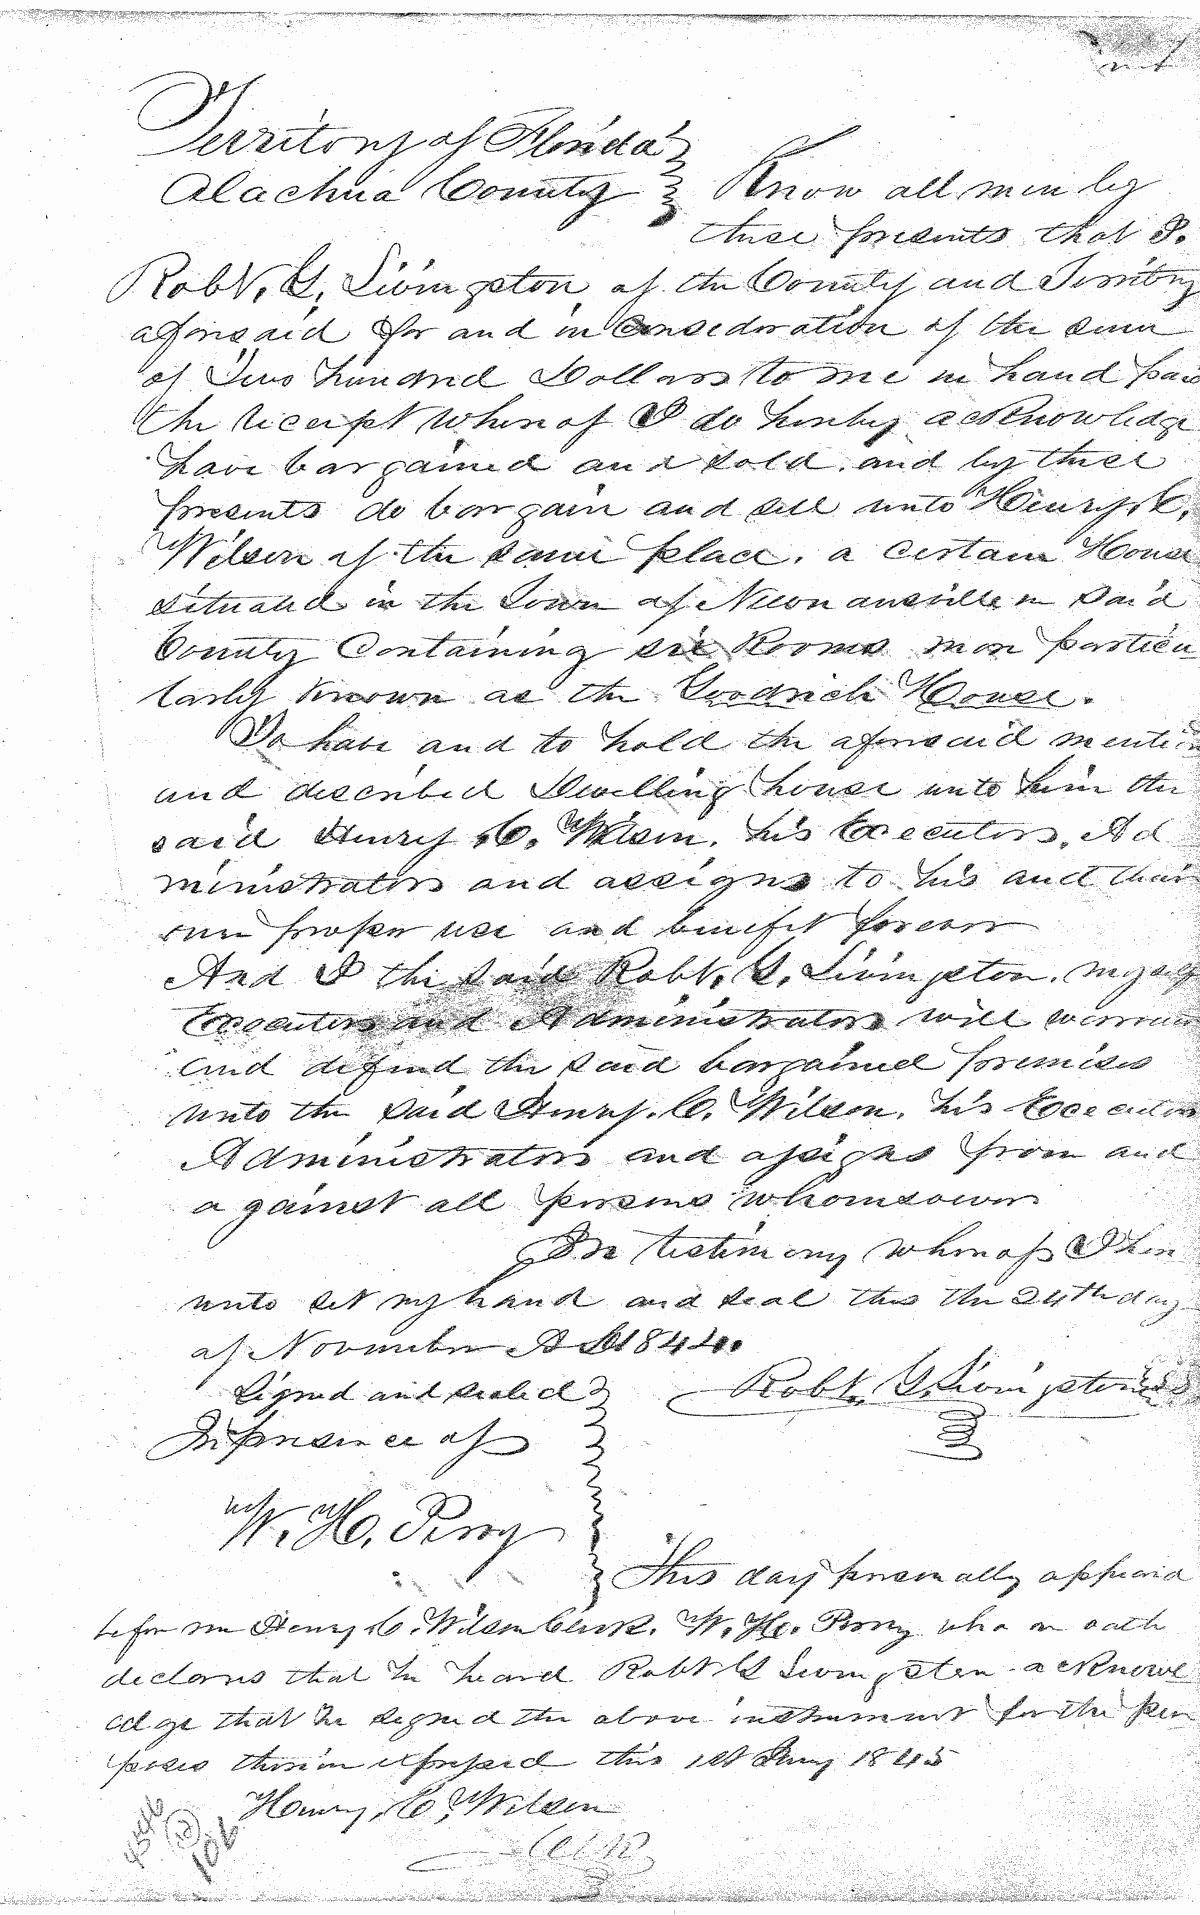 Territory of Florida
Alachua County } Know all men by
these presents that I.
Robt. G. Livingston of the County and Territory
aforesaid for and in Consideration of the sum
of Two hundred Dollars to me in hand paid
the receipt whereof I do hereby acknowledge
have bargained and sold, and by these
presents do bargain and sell unto Henry C.
Wilson of the same place, a certain House
situated in the Town of Newnansville in said
County Containing six Rooms more particu
larly known as the Goodrich House.
To have and to hold the aforesaid mention
and described Dwelling house unto him the
said Henry C. Wilson, his Executors, Ad
ministrators and assigns to his and their
own proper use and benefit forever
And I the said Robt. G. Livingston, myself
Executors and Administrators will warrant
and defend the said bargained premises
unto the said Henry. C. Wilson, his Executors
Administrators and assigns from and
against all persons whomsoever
In testimony whereof I here
unto set my hand and seal this the 24th day
of November A D 1844.
Signed and sealed } Robt. G. Livingston
In presence of
W. H. Perry
This day personally appeard
before me Henry C. Wilson Clerk. W. H. Perry who on oath
declares that he heard Robt G Livingston acknowl
edge that he signed the above instrument for the pur
poses therein expressed this 1st Jany 1845
Henry, C, Wilson
Clerk